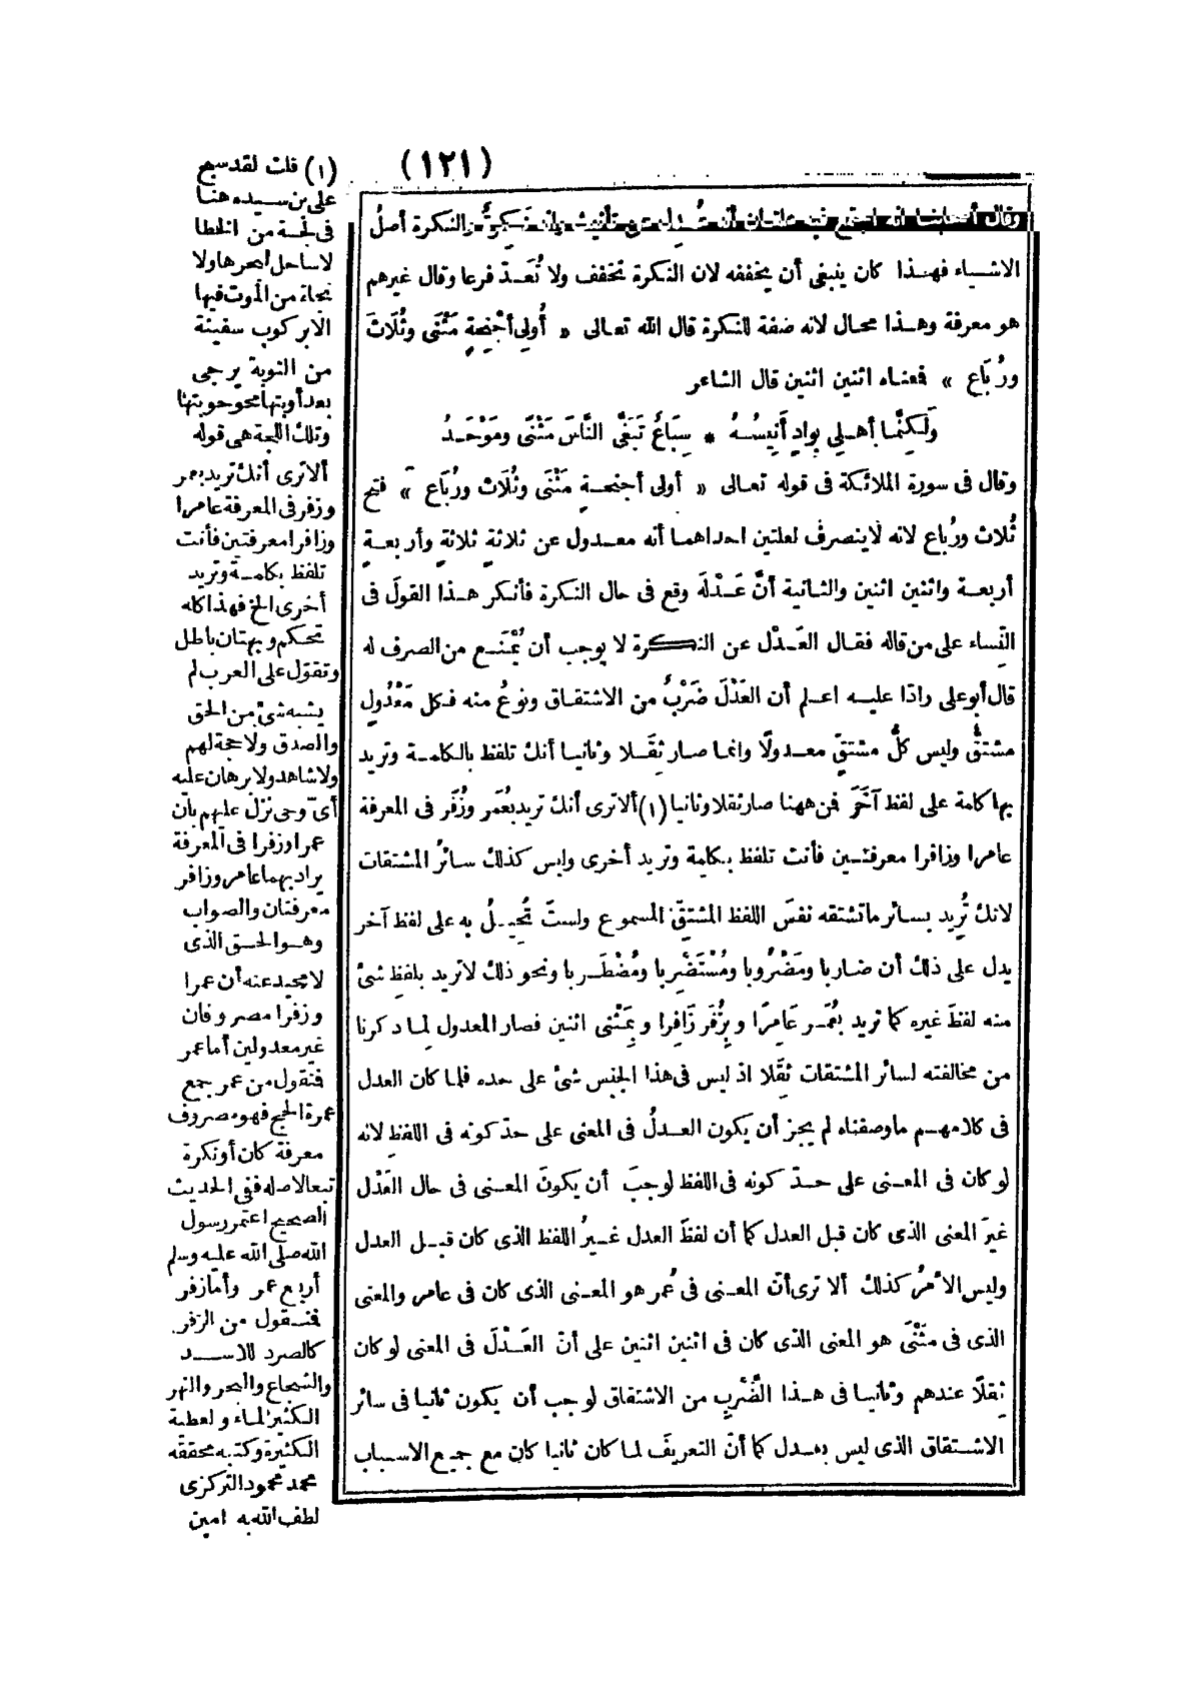 (١٢١)
وقال أصحابنا انه اجتمع فيه علتان أنه عُدِل عن تأنيث وانه نكرةٌ والنكرة أصلُ
الاشياء فهذا كان ينبغى أن يخففه لان النكرة تخفف ولا تُعَدّ فرعا وقال غيرهم
هو معرفة وهذا محال لانه صفة للنكرة قال الله تعالى « أُولِى أجْنِحةٍ مَثْنَى وثُلَاثَ
ورُبَاع » فعناه اثنين اثنين قال الشاعر
ولَكِنَّما أهلِى بِوادٍ أَنِيسُهُ * سِبَاعٌ تَبَغَّى النَّاسَ مَثْنَى ومَوْحَدُ
وقال فى سورة الملائكة فى قوله تعالى « أولى أجنحةٍ مَثْنَى وثُلَاثَ ورُبَاع » فتح
ثُلاث ورُباع لانه لاينصرف لعلتين احداهما أنه معدول عن ثلاثةٍ ثلاثةٍ وأربعةٍ
أربعة واثنين اثنين والثانية أنَّ عَدْلَه وقع فى حال النكرة فأنكر هذا القولَ فى
النِّساء على من قاله فقال العَدْل عن النكرة لا يوجب أن يُمْنَع من الصرف له
قال أبوعلى رادًا عليه اعلم أن العَدْلَ ضَرْبٌ من الاشتقاق ونوعٌ منه فكل مَعْدُولٍ
مشتقٌّ وليس كلُّ مشتقٍّ معدولًا وانما صار ثِقَلا وثانيا أنك تلفظ بالكلمة وتريد
بها كلمة على لفظ آخَرَ فن ههنا صار ثقلا وثانيا (١) ألاترى أنك تريد بعُمَر وزُفَر فى المعرفة
عامرا وزافرا معرفتين فأنت تلفظ بكلمة وتريد أخرى وليس كذلك سائرُ المشتقات
لانك تُريد بسائر ماتشتقه نفسَ اللفظ المشتقّ المسموع ولستَ تُحِيلُ به على لفظ آخر
يدل على ذلك أن ضاربا ومَضْرُوبا ومُسْتَضْرِبا ومُضْطَرِبا ونحو ذلك لاتريد بلفظِ شئٍ
منه لفظَ غيره كما تريد بعُمَر عَامِرًا وبِزُفَر زَافِرا وبِمَثْنى اثنين فصار المعدول لما ذكرنا
من مخالفته لسائر المشتقات ثِقَلا اذ ليس فى هذا الجنس شئ على حده فلما كان العدل
فى كلامهم ماوصفناه لم يجز أن يكون العدلُ فى المعنى على حدّ كونه فى اللفظِ لانه
لو كان فى المعنى على حدّ كونه فى اللفظ لوجبَ أن يكونَ المعنى فى حال العَدْل
غيرَ المعنى الذى كان قبل العدل كما أن لفظَ العدل غيرُ اللفظ الذى كان قبل العدل
وليس الأمرُ كذلك ألا ترى أنّ المعنى فى عُمر هو المعنى الذى كان فى عامر والمعنى
الذى فى مَثْنَى هو المعنى الذى كان فى اثنين اثنين على أنّ العَدْلَ فى المعنى لو كان
ثِقلًا عندهم وثانيا فى هذا الضَّرْبِ من الاشتقاق لوجب أن يكون ثانيا فى سائر
الاشتقاق الذى ليس بعدل كما أنّ التعريفَ لما كان ثانيا كان مع جميع الاسباب
(١) قلت لقد سبح
على بن سيده هنا
فى لجة من الخطا
لاساحل لبحرها ولا
نجاة من الموت فيها
الابركوب سفينة
من التوبة يرجى
بعد أوبتها محو حوبتها
وتلك اللجة هى قوله
ألاترى أنك تريد بعمر
وزفر فى المعرفة عامرا
وزافرا معرفتين فأنت
تلفظ بكلمة وتريد
أخرى الخ فهذا كله
تحكم وبهتان باطل
وتقول على العرب لم
يشبه شئ من الحق
والصدق ولا حجة لهم
ولاشاهد ولا برهان عليه
أىّ وحى نزل عليهم بأن
عمرا وزفرا فى المعرفة
يراد بهما عامر وزافر
معرفتان والصواب
وهو الحق الذى
لا محيد عنه أن عمرا
وزفرا مصروفان
غير معدولين أما عمر
فنقول من عمر جمع
عمرة الحج فهو مصروف
معرفة كان أو نكرة
تبعا لاصله ففى الحديث
الصحيح اعتمر رسول
الله صلى الله عليه وسلم
أربع عمر وأما زفر
فنقول من الزفر
كالصرد للاسد
والشجاع والبحر والنهر
الكثير الماء والعطية
الكثيرة وكتبه محققه
محمد محمود التركزى
لطف الله به امين